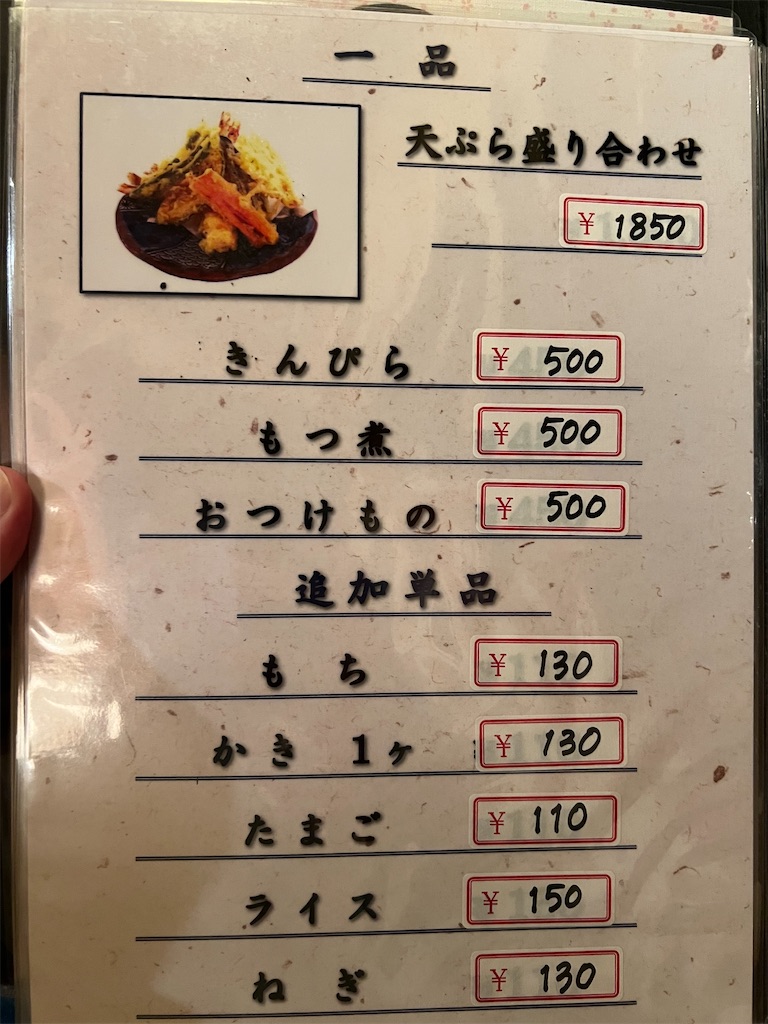 一品
天ぷら盛り合わせ
¥ 1850
きんぴら ¥ 500
もつ煮 ¥ 500
おつけもの ¥ 500
追加単品
もち ¥ 130
かき 1ヶ ¥ 130
たまご ¥ 110
ライス ¥ 150
ねぎ ¥ 130